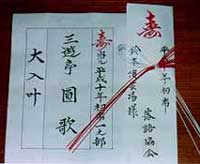 寿
平 年初席
鈴本演芸場様
落語協会
寿 平成十年初席第一部
三遊亭圓歌
大入叶